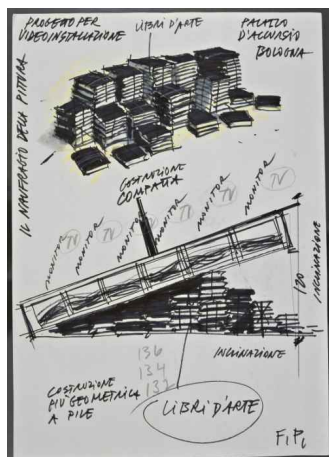 PROGETTO PER
VIDEOINSTALLAZIONE
LIBRI D'ARTE
PALAZZO
D'ACCURSIO
BOLOGNA
IL NAUFRAGIO DELLA PITTURA
COSTRUZIONE
COMPATTA
MONITOR TV
MONITOR TV
MONITOR TV
MONITOR TV
MONITOR TV
MONITOR TV
120
INCLINAZIONE
INCLINAZIONE
136
134
132
COSTRUZIONE
PIÙ GEOMETRICA
A PILE
LIBRI D'ARTE